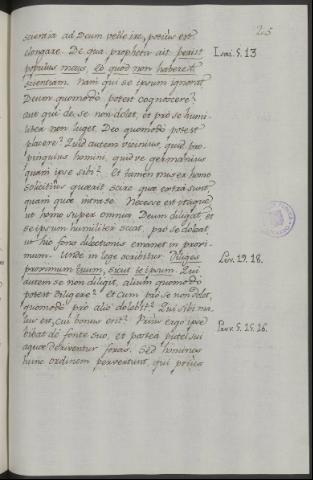 25
scientia ad Deum velle ire, potius est
elongare. De qua propheta ait periit
populus meus, eò quod non haberet
scientiam. Nam qui se ipsum ignorat
Deum quomodo potest cognoscere?
aut qui de se non dolet, et pro se humi-
liter non luget, Deo quomodo potest
placere? Quid autem vicinius, quid pro-
pinquius homini, quid ve germanius
quam ipse sibi? Et tamen miser homo
solicitius quærit scire quæ extra sunt
quam quæ intra se. Necesse est itaque
ut homo super omnia Deum diligat, et
se ipsum humiliter sciat, pro se doleat,
ut hic fons dilectionis emanet in proxi-
mum. Unde in lege scribitur Diliges
proximum tuum, sicut te ipsum. Qui
autem se non diligit, alium quomodo
potest diligere? et cum pro se non dolet,
quomodo pro alio dolebit? Qui sibi ma-
lus est, cui bonus erit? Prius ergo ipse
bibat de fonte suo, et postea putei sui
aquæ deriventur foras. Sed homines
hunc ordinem pervertunt, qui prius
Isai. 5. 13
Lev. 19. 18.
Prov. 5. 15. 16.